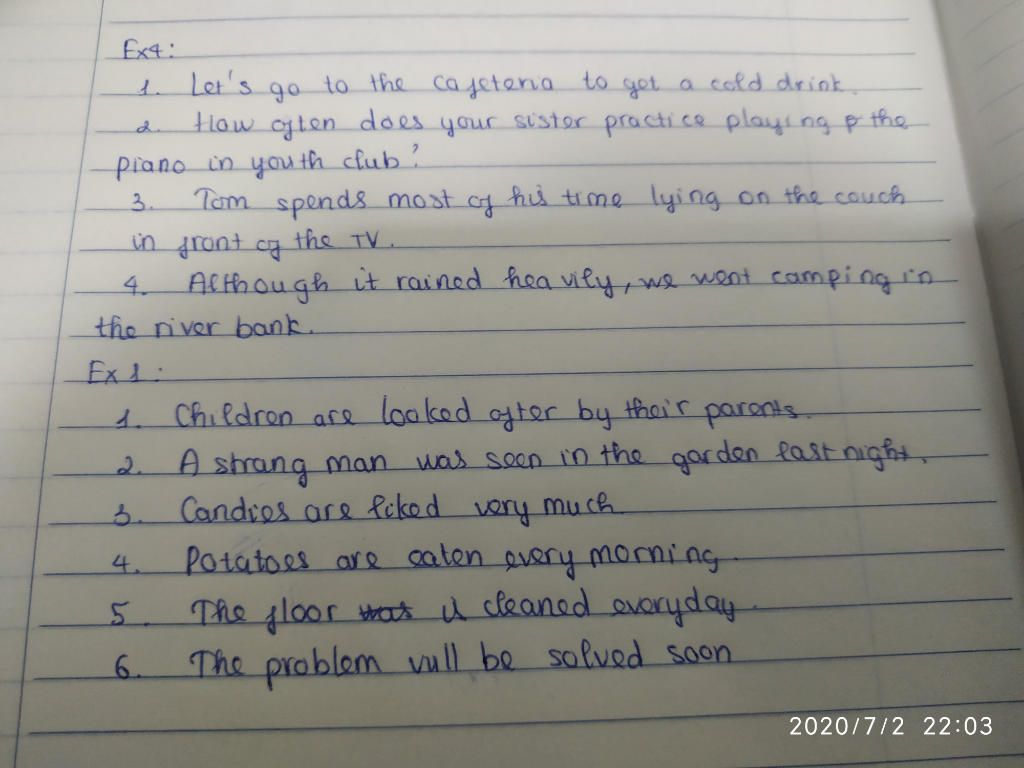 Ex4:
1. Let's go to the cafeteria to get a cold drink.
2. How often does your sister practice playing the
piano in youth club?
3. Tom spends most of his time lying on the couch
in front of the TV.
4. Although it rained heavily, we went camping in
the river bank.
Ex 1:
1. Children are looked after by their parents.
2. A strang man was seen in the garden last night.
3. Candies are liked very much
4. Potatoes are eaten every morning.
5. The floor was is cleaned everyday.
6. The problem will be solved soon
2020/7/2 22:03